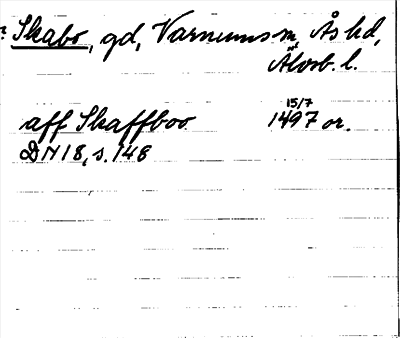 Skabo, gd, Varnums sn, Ås hd,
Älvsb. l.
15/7
aff Skaffboo 1497 or.
DN 18, s. 148